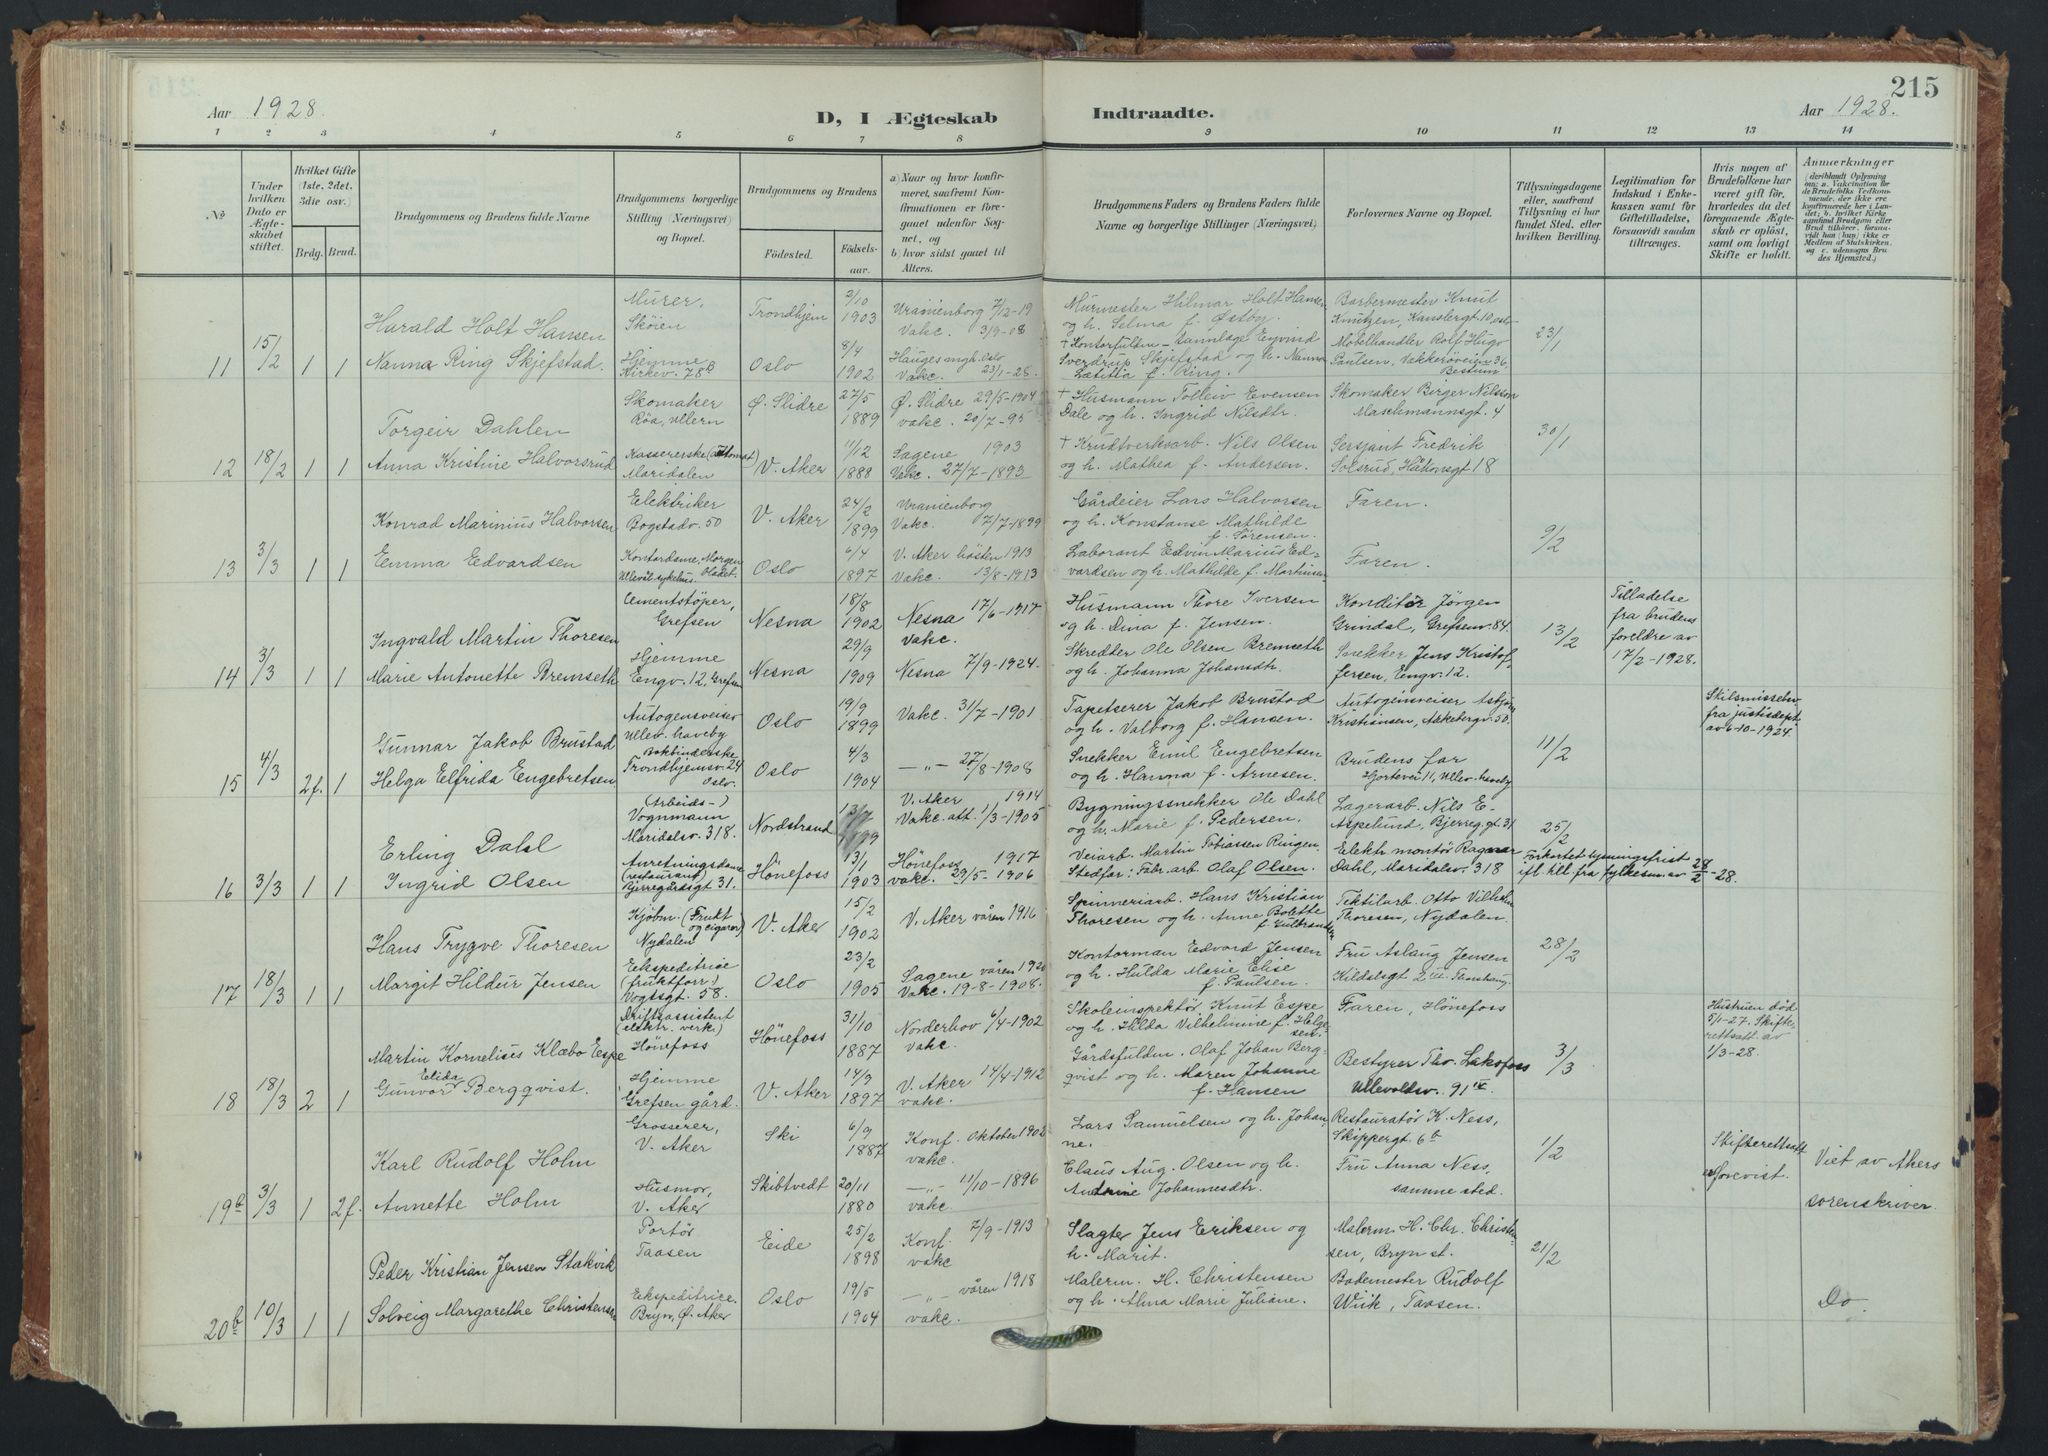 Aar 1928.
D, I Ægteskab
Indtraadte.
215
Aar 1928.
1 2 3 4 5 6 7 8 9 10 11 12 13 14
No
Under hvilken Dato er Ægteskabet stiftet.
Hvilket Gifte (1ste, 2det, 3die osv.)
Brdg. Brud.
Brudgommens og Brudens fulde Navne
Brudgommens borgerlige Stilling (Næringsvei) og Bopæl.
Brudgommens og Brudens
Fødested.
Fødselsaar.
a) Naar og hvor konfirmeret, saafremt Konfirmationen er foregaaet udenfor Sognet, og
b) hvor sidst gaaet til Alters.
Brudgommens Faders og Brudens Faders fulde Navne og borgerlige Stillinger (Næringsvei)
Forlovernes Navne og Bopæl.
Tillysningsdagene eller, saafremt Tillysning ei har fundet Sted, efter hvilken Bevilling.
Legitimation for Indskud i Enkekassen samt for Giftetilladelse, forsaavidt saadan tiltrænges.
Hvis nogen af Brudefolkene har været gift før, hvorledes da det foregaaende Ægteskab er opløst, samt om lovligt Skifte er holdt.
Anmærkninger (deriblandt Oplysning om: a. Vakcination for de Brudefolks Vedkommende, der ikke ere konfirmerede her i Landet; b. hvilket Kirkesamfund Brudgom eller Brud tilhører, forsaavidt han (hun) ikke er Medlem af Statskirken og c. udensogns Brudes Hjemsted.)
11 15/2 1 1
Harald Holt Hansen
Murer, Skøien
Trondhjem 3/10 1903
Uranienborg 7/12-19
Vakc. 3/9-08
Murmester Hilmar Holt Hansen og h. Selma f. Østby.
Barbermester Knut Knutzen, Kansbergt. 10, Oslo
23/1
Nanna Ring Skjefstad.
Hjemme Kirkev. 78b
Oslo 8/4 1902
Hauges mgh. Oslo
Vakc. 23/1-28.
+ Kontorfuldm. Eyvind Sverdrup Skjefstad og h. Nanna Lætitia f. Ring.
Møbelhandler Rolf Hugo Paulsen, Vækkerøveien 36, Bestum
12 18/2 1 1
Torgeir Dahlen
Skomaker Røa, Ullern
Ø. Slidre 27/5 1889
Ø. Slidre 29/5-1904
vakc. 20/7-95
+ Husmann Tolleiv Evensen Dale og h. Ingrid Nilsdtr.
Skomaker Birger Nilsson Maschmannsgt. 4
30/1
Anna Kristine Halvorsrud
Kassererske (Automat) Maridalen
V. Aker 11/2 1888
Sagene 1903
Vakc. 27/7-1893
+ Krudtverkarb. Nils Olsen og h. Mathea f. Andersen.
Sersjant Fredrik Solsrud, Håkonsgt 18
13 3/3 1 1
Konrad Marinius Halvorsen
Elektriker Bogstadv. 50
V. Aker 24/2 1899
Uranienborg
Vakc. 7/7-1899
Gårdeier Lars Halvorsen og h. Konstanse Mathilde f. Sørensen.
Faren.
9/2
Emma Edvardsen
Kontordame, Morgenbladet. Ullevål sykehus.
Oslo 6/4 1897
V. Aker høsten 1913
Vakc. 13/8-1913
Laborant Edvin Marius Edvardsen og h. Mathilde f. Martinsen
Faren.
14 3/3 1 1
Ingvald Martin Thoresen
Cementstøper, Grefsen
Nesna 18/8 1902
Nesna 17/6-1917
vakc.
Husmann Thore Iversen og h. Dina f. Jensen.
Konditor Jørgen Grindal, Grefsenv. 84.
13/2
Tilladelse fra brudens foreldre av 17/2-1928.
Marie Antonette Bremseth
Hjemme Engv. 12, Grefsen
Nesna 29/9 1909
Nesna 7/9-1924.
Skrædder Ole Olsen Bremseth og h. Johanna Johansdtr.
Snekker Jens Kristoffersen, Engv. 12.
15 4/3 2f. 1
Gunnar Jakob Brustad
Autogensveiser Ullev. haveby
Oslo 19/9 1899
Vakc. 31/7-1901
Tapetserer Jakob Brustad og h. Valborg f. Hansen.
Autogensveiser Asbjørn Kristiansen, Akebergv. 50.
11/2
Skilsmissebev. fra justisdept. av 6-10-1924.
Helga Elfrida Engebretsen
Bokbinderske Trondhjemsv. 24 Oslo.
Oslo 4/3 1904
—"— 27/8-1908
Snekker Emil Engebretsen og h. Hanna f. Arnesen.
Brudens far Hjortevei 11, Ullev. haveby
16 3/3 1 1
Erling Dahl
(Arbeids-) Vognmann Maridalsv. 318.
Nordstrand 13/7 1899
V. Aker 1914
Vakc. att. 1/3-1905
Bygningssnekker Ole Dahl og h. Marie f. Pedersen.
Lagerarb. Nils E. Aspelund, Bjerreg. gt. 31
25/2
Forkortet lysningsfrist ifl. till. fra fylkesm. av 28/2-28.
Ingrid Olsen
Anretningsdame (restaurant) Bjerregårdsgt 31.
Hönefoss 13/1 1903
Hönefoss 1917
vakc. 29/5-1906
Veiarb. Martin Tobiassen Ringen. Stedfar: Fabr. arb. Olaf Olsen.
Elektr. montør Ragnar Dahl, Maridalsv. 318
17 18/3 1 1
Hans Trygve Thoresen
Kjøbm. (Frukt og cigarer) Nydalen
V. Aker 15/2 1902
V. Aker våren 1916
Spinneriarb. Hans Kristian Thoresen og h. Anne Bolette f. Gulbrandsen
Tektilarb. Otto Vilhelm Thoresen, Nydalen.
28/2
Margit Hildur Jensen
Ekspeditrice (fruktforr.) Vogtsgt. 58.
Oslo 23/2 1905
Sagene våren 1920
Vakc. 19-8-1908.
Kontorman Edvard Jensen og h. Hulda Marie Elise f. Paulsen.
Fru Aslaug Jensen
18 18/3 2 1
Martin Kornelius Klæbo Espe
Driftsassistent (elektr. verk.) Hönefoss
Hönefoss 31/10 1887
Norderhov 6/4-1902
vakc.
Skoleinspektør Knut Espe og h. Hilda Vilhelmine f. Helgesen.
Faren, Hönefoss
3/3
Hustruen död 5/1-27. Skifterettsatt. av 1/3-28.
Gunvor Elida Bergqvist.
Hjemme Grefsen gård.
V. Aker 14/3 1897
V. Aker 14/4-1912
vakc.
Gårdsfuldm. Olaf Johan Bergqvist og h. Maren Johanne f. Hansen
Bestyrer Thv. Laksfoss Ullevoldsv. 91 IV
19b 3/3 1 2f.
Karl Rudolf Holm
Grosserer, V. Aker
Ski 6/9 1887
Konf. Oktober 1902
vakc.
Lars Samuelsen og h. Johanne.
Restauratør K. Ness, Skippergt. 6b
1/2
Skifterettsatt. er forevist.
Viet av Akers sorenskriver.
Annette Holm
Husmor, V. Aker
Skibtvedt 20/11 1880
—"— 11/10-1896
vakc.
Claus Aug. Olsen og h. Andrine Johannesdtr.
Fru Anna Ness, samme sted.
20b 10/3 1 1
Peder Kristian Jensen Stakvik
Portør Taasen
Eide 25/2 1898
Konf. 7/9-1913
vakc
Slagter Jens Eriksen og h. Marit.
Malerm. H. Chr. Christensen, Bryn st.
21/2
Do.
Solveig Margarethe Christensen
Ekspeditrice. Bryn, Ø. Aker
Oslo 19/5 1904
—"— våren 1918
vakc.
Malerm. H. Christensen og h. Alma Marie Juliane.
Bademester Rudolf Wiik, Taasen.